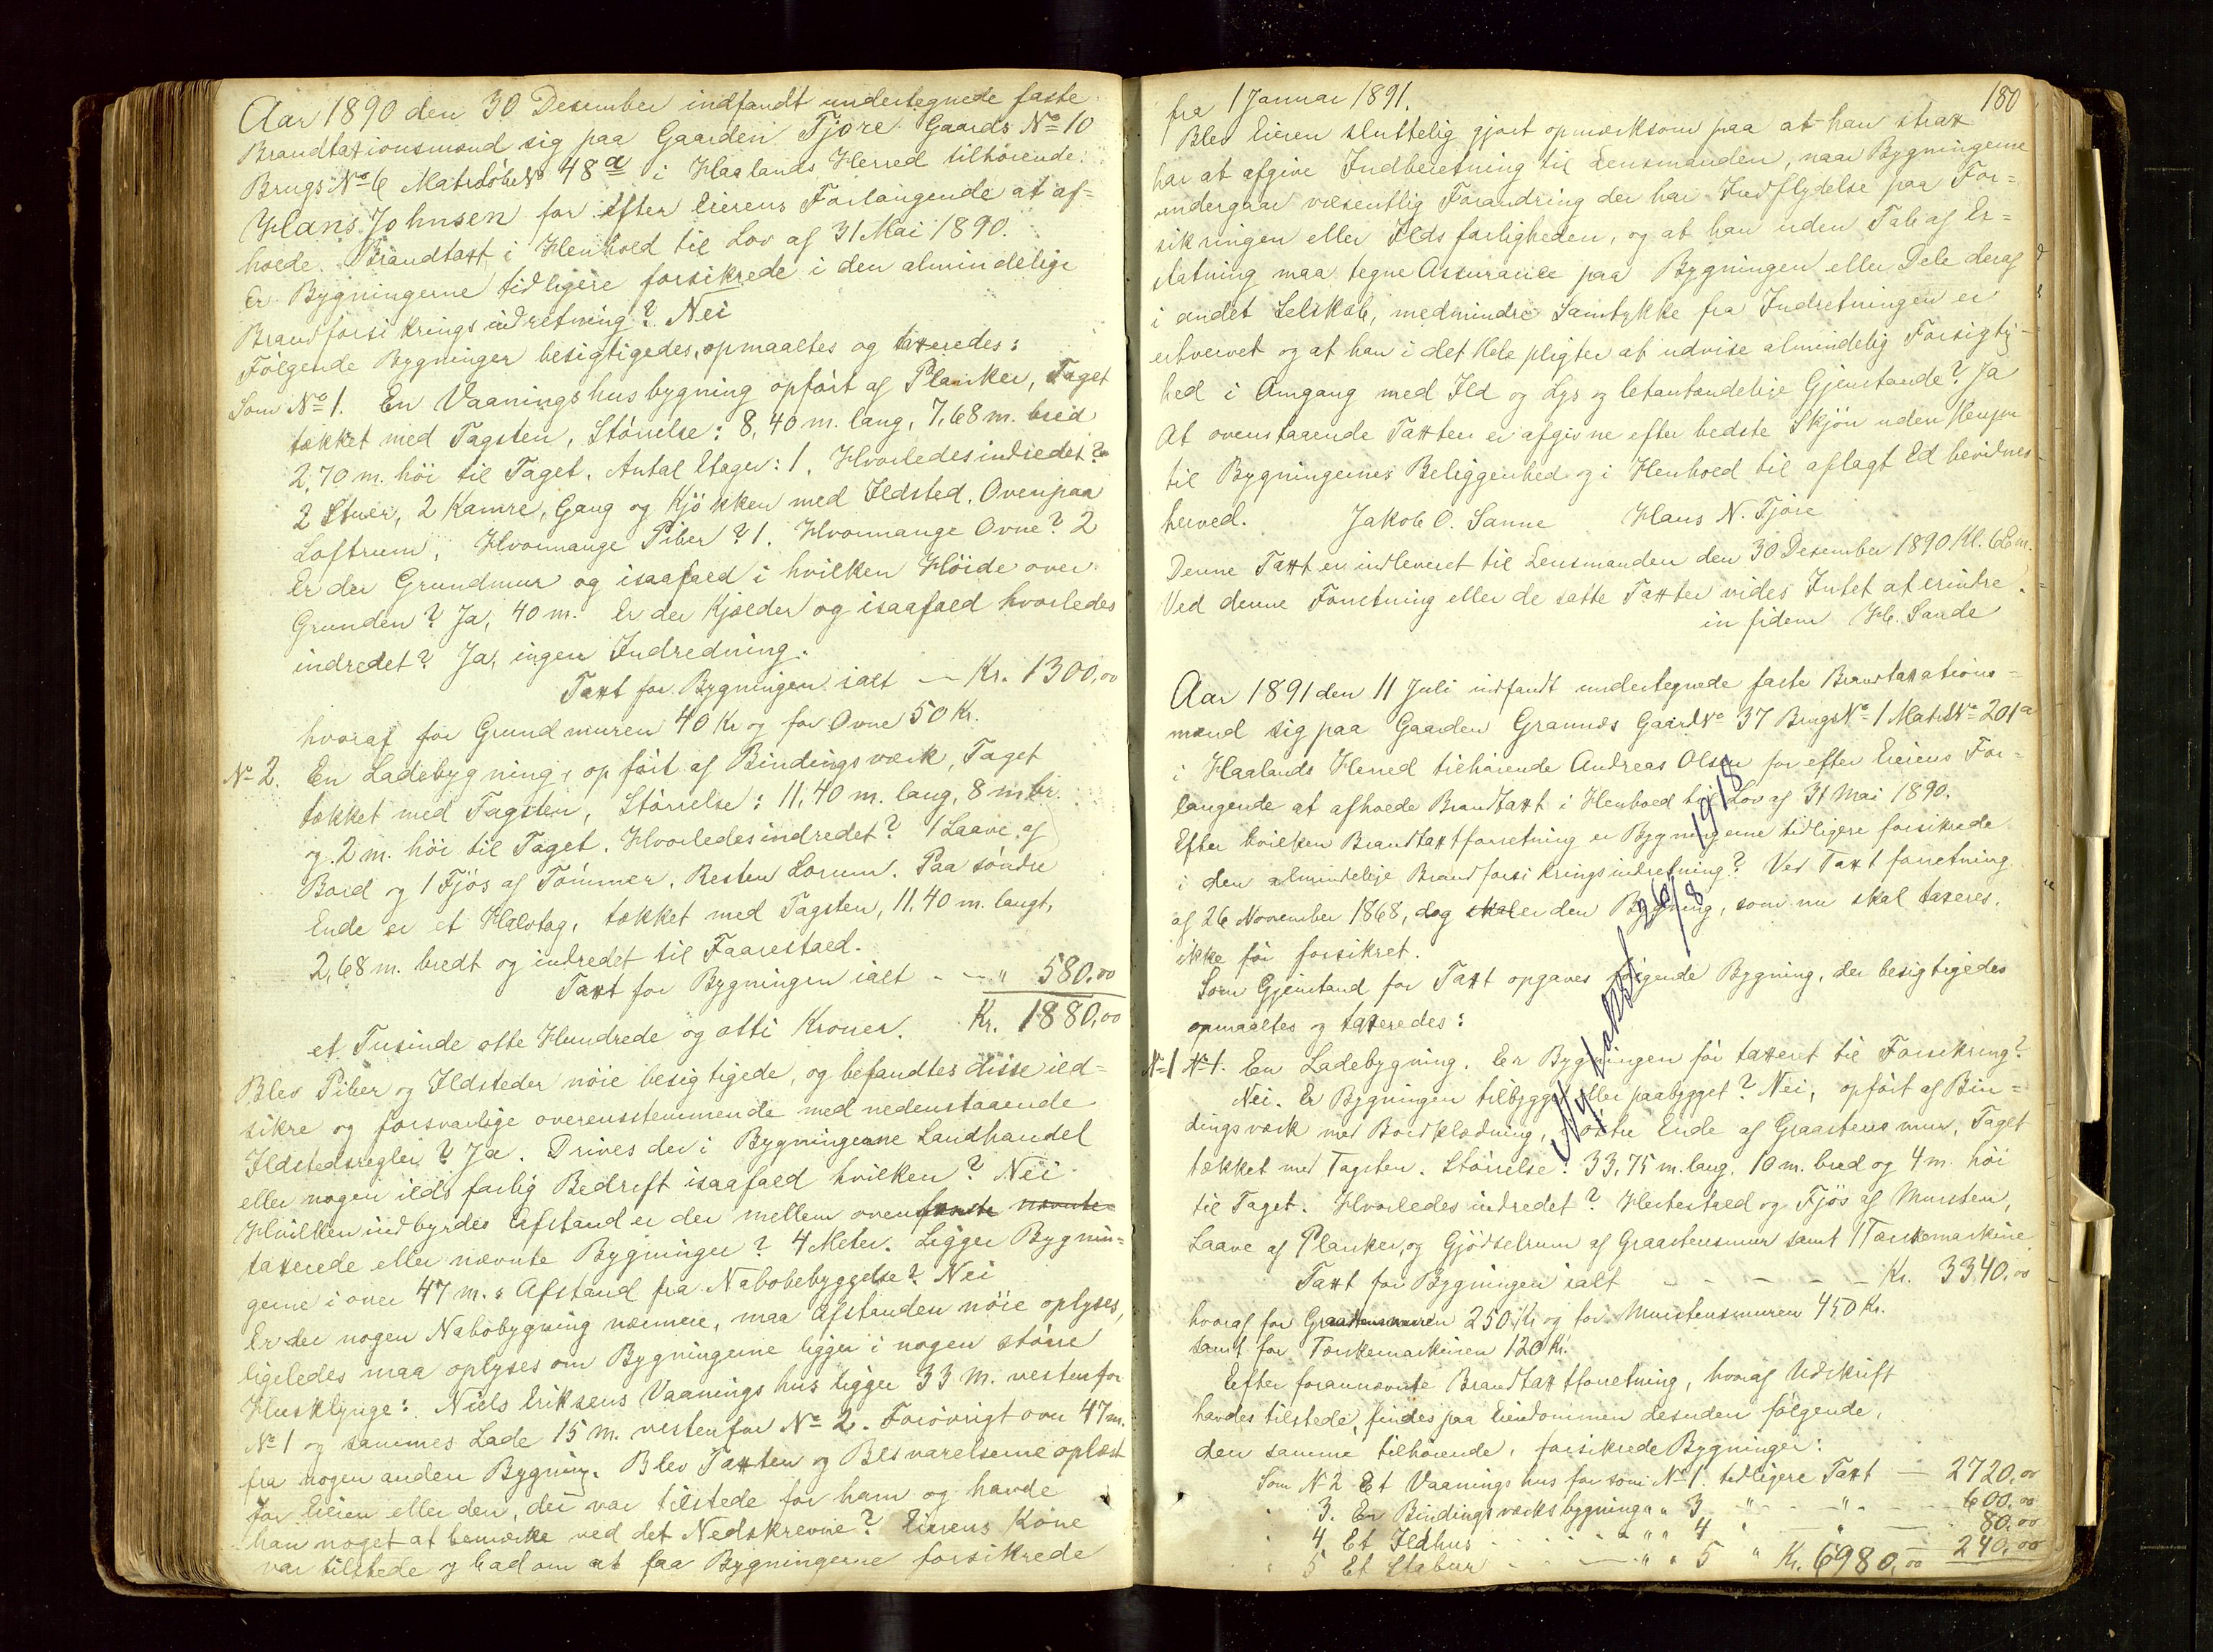 Aar 1890 den 30 Desember indfandt undertegnede faste
Brandtaxionsmænd sig paa Gaarden Tjore Gaards No 10
Brugs No 6 Matrsløb No 48a i Haalands Herred tilhørende
Hans Johnsen for efter Eierens Forlangende at af=
holde Brandtaxt i Henhold til Lov af 31 Mai 1890.
Er Bygningerne tidligere forsikrede i den almindelige
Brandforsikringsindretning? Nei
Følgende Bygninger besigtigedes, opmaaltes og taxeredes:
Som No 1. En Vaaningshusbygning opført af Planker, Taget
tækket med Tagsten, Størrelse: 8,40 m. lang, 7,68 m. bred
2,70 m. høi til Taget. Antal Etager: 1. Hvorledes indredet?
2 Stuer, 2 Kamre, Gang og Kjøkken med Ildsted. Ovenpaa
Loftrum. Hvormange Piber? 1. Hvormange Ovne? 2
Er der Grundmur og isaafald i hvilken Høide over
Grunden? Ja, 40 m. Er der Kjælder og isaafald hvorledes
indredet? Ja, ingen Indredning.
Taxt for Bygningen ialt — Kr. 1300,00
hvoraf for Grundmuren 40 Kr og for Ovne 50 Kr.
No 2. En Ladebygning, opført af Bindingsværk, Taget
tækket med Tagsten, Størrelse: 11,40 m. lang, 8 m br.
og 2 m. høi til Taget. Hvorledes indredet? 1 Laave af
Bord og 1 Fjøs af Tømmer. Resten Lorum. Paa søndre
Ende er et Halvtag, tækket med Tagsten, 11,40 m. langt,
2,68 m. bredt og indredet til Faarestald.
Taxt for Bygningen ialt - - " 580,00
et Tusinde otte Hundrede og otti Kroner. Kr. 1880,00
Blev Piber og Ildsteder nøie besigtigede, og befandtes disse ild=
sikre og forsvarlige overensstemmende med nedenstaaende
Ildstedsregler? Ja. Drives der i Bygningerne Landhandel
eller nogen ildsfarlig Bedrift isaafald hvilken? Nei
Hvilken indbyrdes Afstand er der mellem oven nævnte
taxerede eller nævnte Bygninger? 4 Meter. Ligger Bygnin=
gerne i over 47 m.s Afstand fra Nabobebyggelse? Nei
Er der nogen Nabobygning nærmere, maa Afstanden nøie oplyses,
ligeledes maa oplyses om Bygningerne ligger i nogen større
Husklynge: Niels Eriksens Vaaningshus ligger 33 M. vestenfor
No 1 og sammes Lade 15 m. vestenfor No 2. Forøvrigt over 47 m.
fra nogen anden Bygning. Blev Taxten og Besvarelserne oplæst
for Eieren eller den, der var tilstede for ham og havde
han noget at bemærke ved det Nedskrevne? Eierens Kone
var tilstede og bad om at faa Bygningerne forsikrede
180
fra 1 Januar 1891.
Blev Eieren sluttelig gjort opmærksom paa at han strax
har at afgive Indberetning til Lensmanden, naar Bygningerne
undergaar væsentlig Forandring der har Indflydelse paa For=
sikringen eller Ildsfarligheden, og at han uden Tab af Er=
statning maa tegne Assurance paa Bygningen eller Dele deraf
i andet Selskab, medmindre Samtykke fra Indretningen er
erhvervet og at han i det Hele pligter at udvise almindelig Forsigtig=
hed i Omgang med Ild og Lys og letantændelige Gjenstande? Ja
At ovenstaaende Taxten er afgivne efter bedste Skjøn uden Hensyn
til Bygningernes Beliggenhed og i Henhold til aflagt Ed bevidnes
herved. Jakob O. Sanne Hans N. Tjore
Denne Taxt er indleveret til Lensmanden den 30 Desember 1890 Kl. 6 Em.
Ved denne Forretning eller de satte Taxter vides Intet at erindre.
in fidem H. Sande
Aar 1891 den 11 Juli indfandt undertegnede faste Brandtaxations=
mænd sig paa Gaarden Grannes Gaard No 37 Brugs No 1 Matr No 201a
i Haalands Herred tilhørende Andreas Olsen for efter Eierens For=
langende at afholde Brandtaxt i Henhold til Lov af 31 Mai 1890.
Efter hvilken Brandtaxtforretning er Bygningerne tidligere forsikrede
i den almindelige Brandforsikringsindretning? Ved Taxtforretning
af 26 November 1868, dog skal er den Bygning, som nu skal taxeres,
ikke før forsikret.
Som Gjenstand for Taxt opgaves følgende Bygning, der besigtigedes
opmaaltes og taxeredes:
No 1 No 1. En Ladebygning. Er Bygningen før taxeret til Forsikring?
Nei. Er Bygningen tilbygget eller paabygget? Nei, opført af Bin=
dingsværk med Bordklædning, østre Ende af Graastensmur, Taget
tækket med Tagsten. Størrelse: 33,75 m. lang, 10 m. bred og 4 m. høi
til Taget. Hvorledes indredet? Hestestald og Fjøs af Mursten,
Laave af Planker, og Gjødselrum af Graastensmur samt 1 Tærskemaskine
Taxt for Bygningen ialt - - - - - Kr. 3340,00
hvoraf for Graastensmuren 250 Kr og for Murstensmuren 450 Kr.
samt for Tærskemaskinen 120 Kr.
Efter forannævnte Brandtaxtforretning, hvoraf Udskrift
havdes tilstede, findes paa Eiendommen desuden følgende,
den samme tilhørende, forsikrede Bygninger:
Som No 2 Et Vaaningshus før som No 1. tidligere Taxt — 2720,00
" 3. En Bindingsværksbygning " " 3 " - - " - - 600,00
" 4 Et Ildhus - - - " " 4 " — " — 80,00
" 5 Et Stabur - - — " " 5 " Kr. 6980,00 240,00
Ny takst 26/8 1918